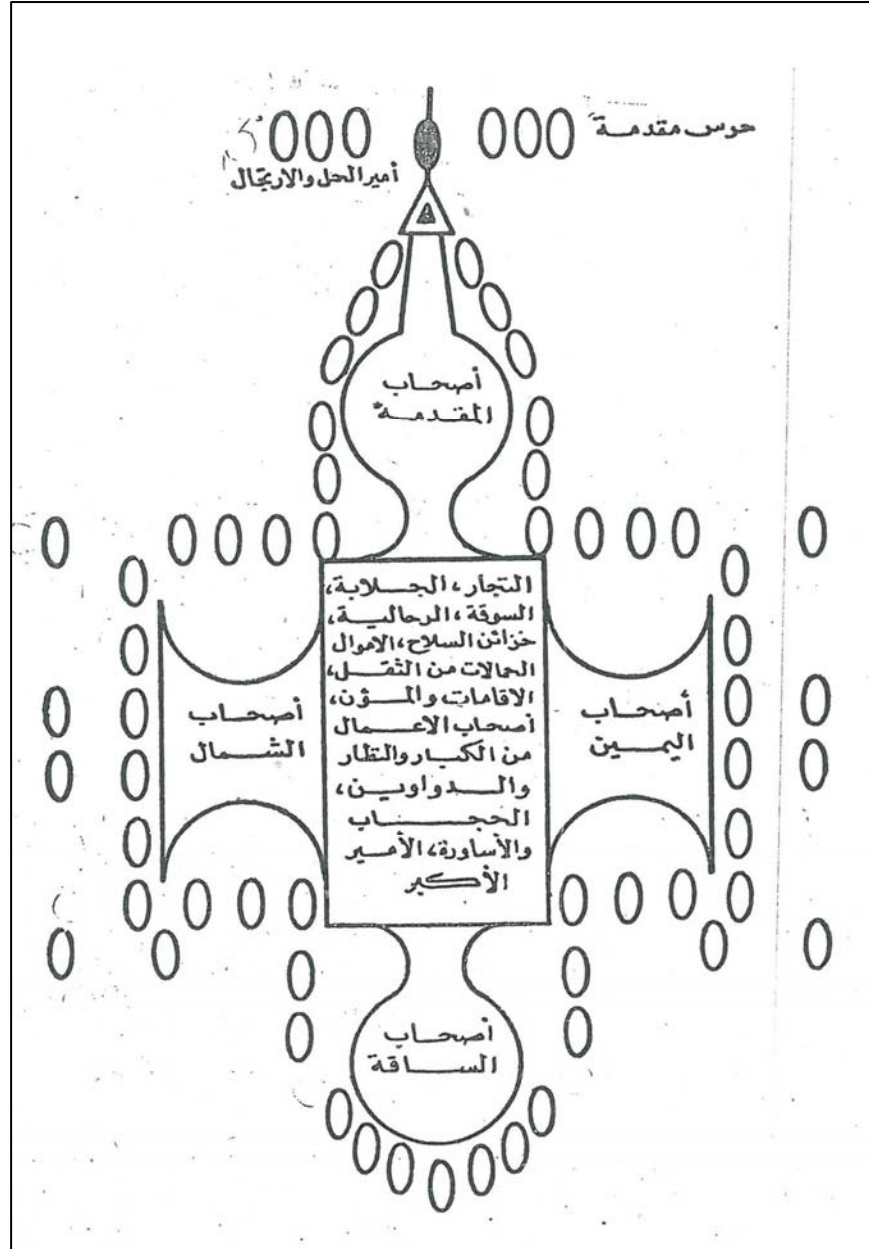 حوس مقدمة
أمير الحل والارتحال
أصحاب
المقدمة
التجار، الجلابة،
السوقة، الرحالية،
خزائن السلاح، الاموال
الحمالات من الثقل،
الاقامات والمؤن،
أصحاب الاعمال
من الكبار والنظار
والدواوين،
الحجاب
والأساورة، الأمير
الأكبر
أصحاب
اليمين
أصحاب
الشمال
أصحاب
الساقة